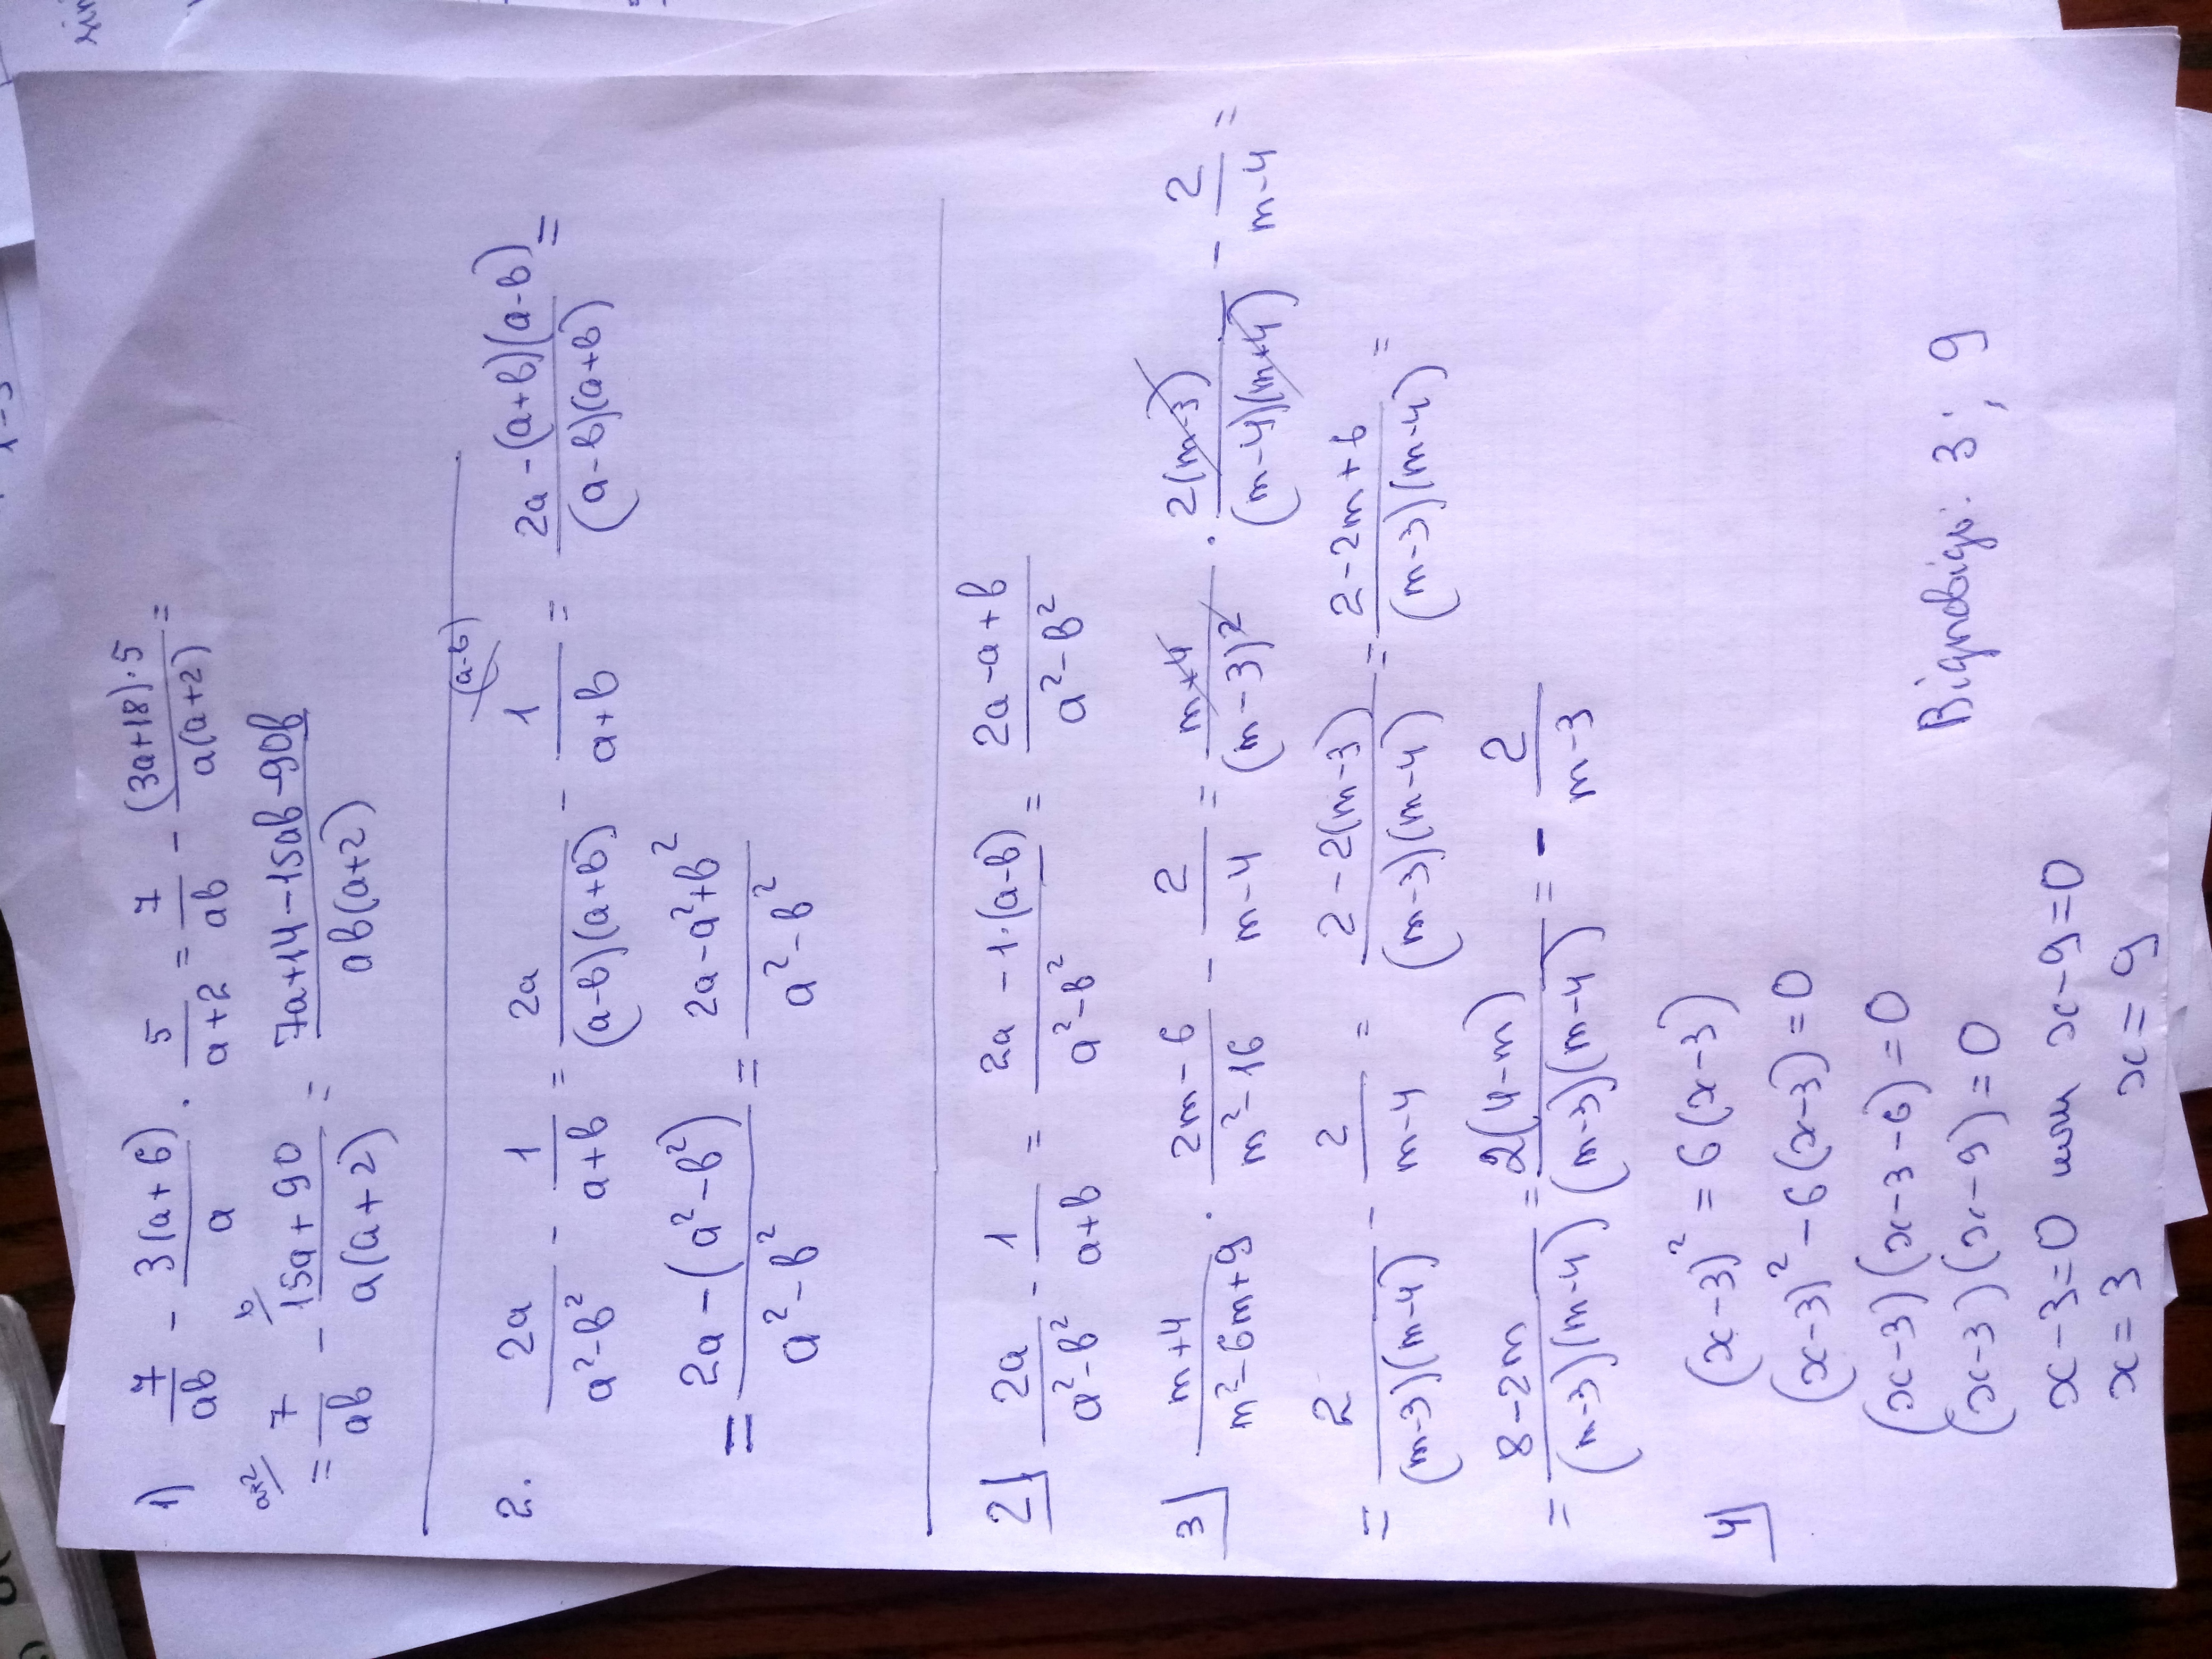 1) 7/ab - 3(a+6)/a · 5/(a+2) = 7/ab - (3a+18)·5/a(a+2) =
= 7/ab - 15a+90/a(a+2) = 7a+14-15ab-90b/ab(a+2)
2. 2a/a²-в² - 1/a+в = 2a/(a-в)(a+в) - 1/a+в (a-в) = 2a-(a+в)(a-в)/(a-в)(a+в) =
= 2a-(a²-в²)/a²-в² = 2a-a²+в²/a²-в²
2 2a/a²-в² - 1/a+в = 2a-1·(a-в)/a²-в² = 2a-a+в/a²-в²
3 m+4/m²-6m+9 · 2m-6/m²-16 - 2/m-4 = m+4/(m-3)² · 2(m-3)/(m-4)(m+4) - 2/m-4 =
= 2/(m-3)(m-4) - 2/m-4 = 2-2(m-3)/(m-3)(m-4) = 2-2m+6/(m-3)(m-4) =
= 8-2m/(m-3)(m-4) = 2(4-m)/(m-3)(m-4) = - 2/m-3
4 (x-3)² = 6(x-3)
(x-3)² - 6(x-3) = 0
(x-3)(x-3-6) = 0
(x-3)(x-9) = 0
x-3=0 или x-9=0
x=3 x=9
Відповідь: 3; 9